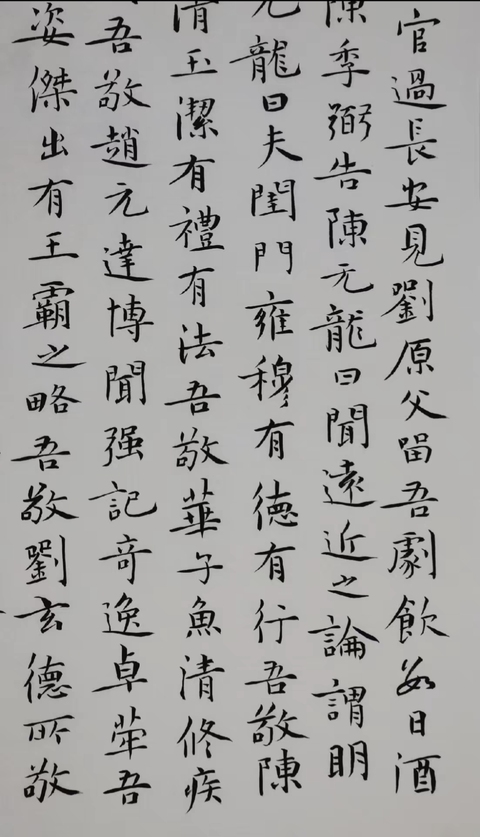 官過長安見劉原父留吾劇飲數日酒
陳季弼告陳元龍曰聞遠近之論謂明
元龍曰夫閨門雍穆有德有行吾敬陳
清玉潔有禮有法吾敬華子魚清修疾
吾敬趙元達博聞强記奇逸卓犖吾
姿傑出有王霸之略吾敬劉玄德所敬